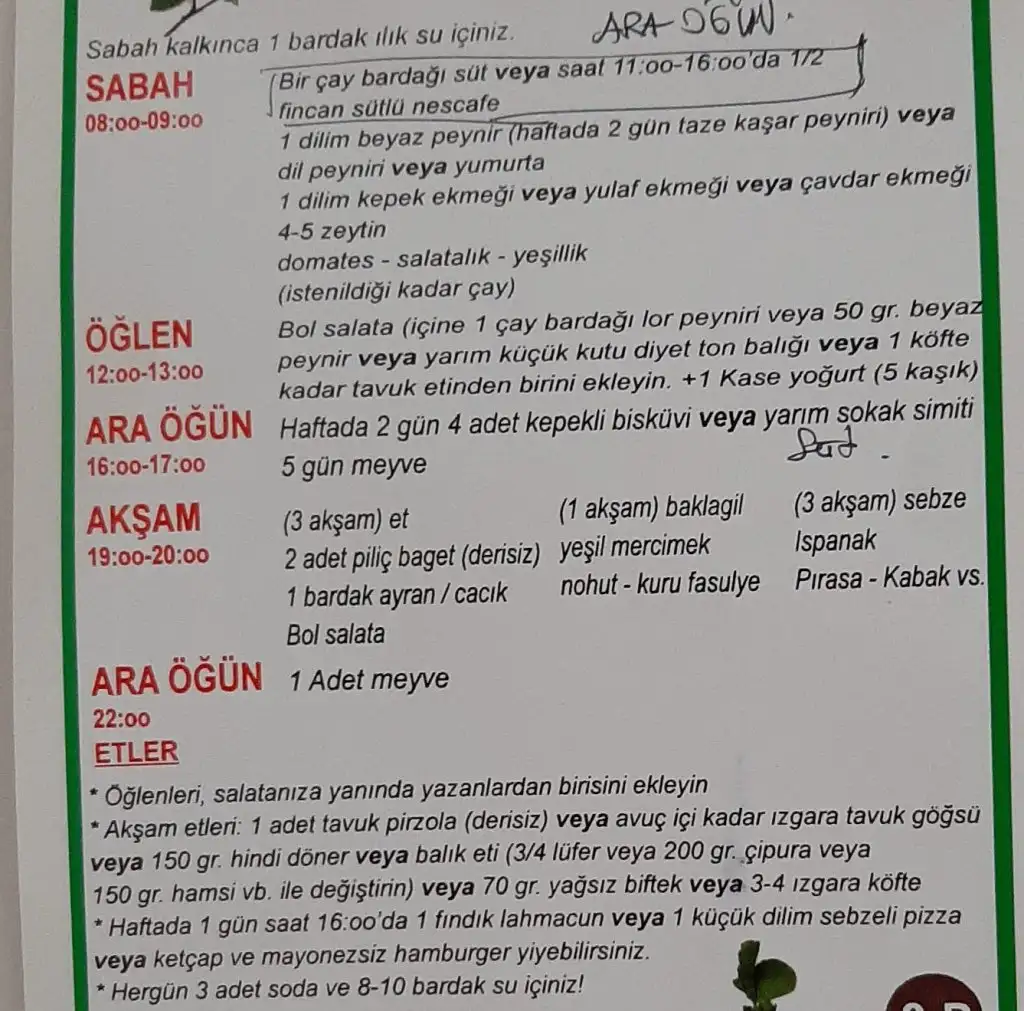 Sabah kalkınca 1 bardak ılık su içiniz.
ARA ÖĞÜN.
SABAH
08:oo-09:oo
(Bir çay bardağı süt veya saat 11:oo-16:oo'da 1/2
fincan sütlü nescafe
1 dilim beyaz peynir (haftada 2 gün taze kaşar peyniri) veya
dil peyniri veya yumurta
1 dilim kepek ekmeği veya yulaf ekmeği veya çavdar ekmeği
4-5 zeytin
domates - salatalık - yeşillik
(istenildiği kadar çay)
ÖĞLEN
12:oo-13:oo
Bol salata (içine 1 çay bardağı lor peyniri veya 50 gr. beyaz
peynir veya yarım küçük kutu diyet ton balığı veya 1 köfte
kadar tavuk etinden birini ekleyin. +1 Kase yoğurt (5 kaşık)
ARA ÖĞÜN
16:oo-17:oo
Haftada 2 gün 4 adet kepekli bisküvi veya yarım sokak simiti
5 gün meyve
AKŞAM
19:oo-20:oo
(3 akşam) et
2 adet piliç baget (derisiz)
1 bardak ayran / cacık
Bol salata
(1 akşam) baklagil
yeşil mercimek
nohut - kuru fasulye
(3 akşam) sebze
Ispanak
Pırasa - Kabak vs.
ARA ÖĞÜN
22:oo
1 Adet meyve
ETLER
* Öğlenleri, salatanıza yanında yazanlardan birisini ekleyin
* Akşam etleri: 1 adet tavuk pirzola (derisiz) veya avuç içi kadar ızgara tavuk göğsü
veya 150 gr. hindi döner veya balık eti (3/4 lüfer veya 200 gr. çipura veya
150 gr. hamsi vb. ile değiştirin) veya 70 gr. yağsız biftek veya 3-4 ızgara köfte
* Haftada 1 gün saat 16:oo'da 1 fındık lahmacun veya 1 küçük dilim sebzeli pizza
veya ketçap ve mayonezsiz hamburger yiyebilirsiniz.
* Hergün 3 adet soda ve 8-10 bardak su içiniz!